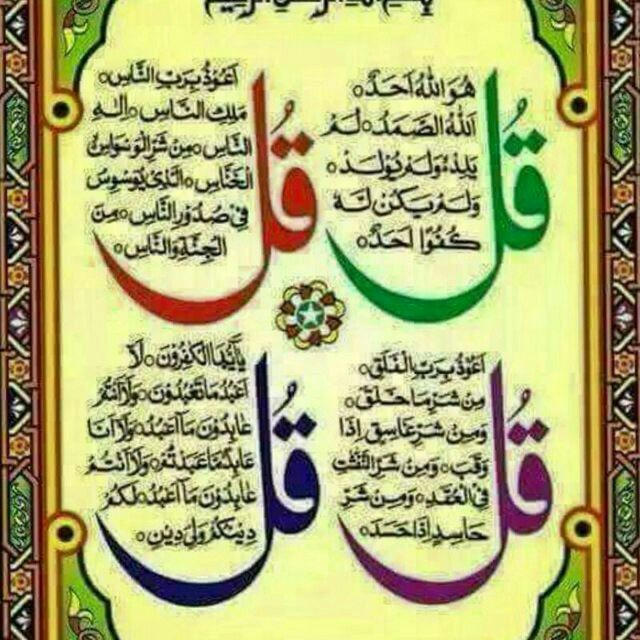 بسم الله الرحمن الرحيم
قُلْ
هُوَ اللهُ اَحَدٌ
اَللهُ الصَّمَدُ لَمْ
يَلِدْ وَلَمْ يُولَدْ
وَلَمْ يَكُنْ لَهٗ
كُفُوًا اَحَدٌ
قُلْ
اَعُوْذُ بِرَبِّ النَّاسِ
مَلِكِ النَّاسِ اِلٰهِ
النَّاسِ مِنْ شَرِّ الْوَسْوَاسِ
الْخَنَّاسِ الَّذِي يُوَسْوِسُ
فِيْ صُدُوْرِ النَّاسِ مِنَ
الْجِنَّةِ وَالنَّاسِ
قُلْ
اَعُوْذُ بِرَبِّ الْفَلَقِ
مِنْ شَرِّ مَا خَلَقَ
وَمِنْ شَرِّ غَاسِقٍ اِذَا
وَقَبَ وَمِنْ شَرِّ النَّفّٰثٰتِ
فِي الْعُقَدِ وَمِنْ شَرِّ
حَاسِدٍ اِذَا حَسَدَ
قُلْ
يٰٓاَيُّهَا الْكٰفِرُوْنَ لَا
اَعْبُدُ مَا تَعْبُدُوْنَ وَلَا اَنْتُمْ
عَابِدُوْنَ مَا اَعْبُدُ وَلَا اَنَا
عَابِدٌ مَا عَبَدْتُمْ وَلَا اَنْتُمْ
عَابِدُوْنَ مَا اَعْبُدُ لَكُمْ
دِيْنُكُمْ وَلِيَ دِيْنِ